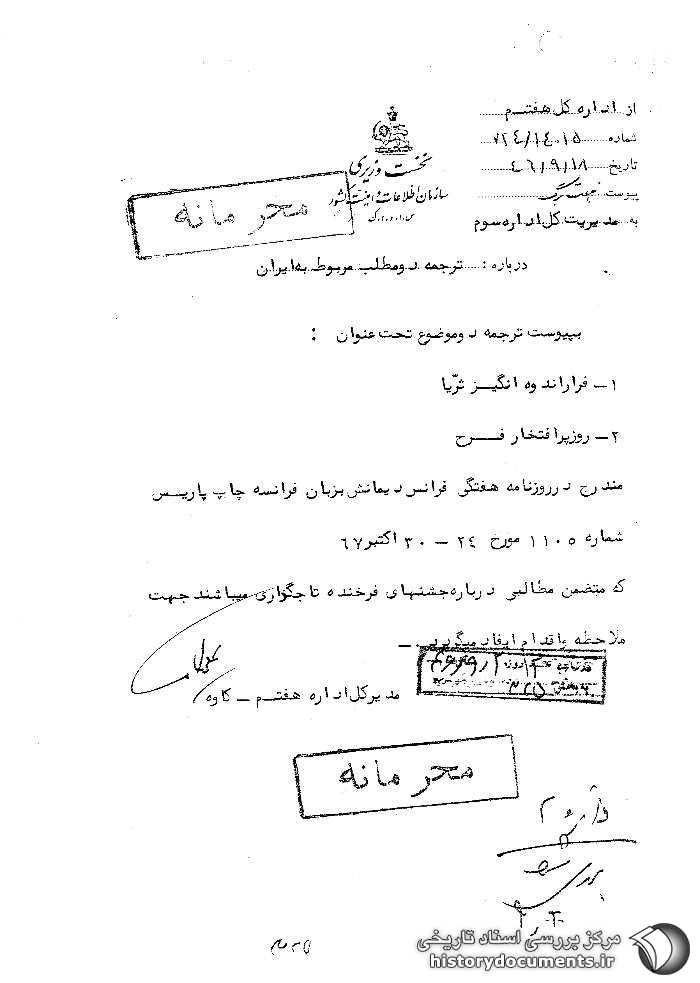 از اداره کل هفتم
شماره ۷۲۴/۱۴۰۱۵
تاریخ ۴۶/۹/۱۸
پیوست
به مدیریت کل اداره سوم
نخست وزیری
سازمان اطلاعات و امنیت کشور
محرمانه
درباره : ترجمه دو مطلب مربوط به ایران
بپیوست ترجمه دو موضوع تحت عنوان :
۱ـ فرار اندوه انگیز ثریّا
۲ـ روز پر افتخار فرح
مندرج در روزنامه هفتگی فرانس دیمانش بزبان فرانسه چاپ پاریس
شماره ۱۱۰۵ مورخ ۲۴ ـ ۳۰ اکتبر ۶۷
که متضمن مطالبی درباره جشنهای فرخنده تاجگذاری میباشند جهت
ملاحظه و اقدام ایفاد میگردد . ـ
مدیر کل اداره هفتم ـ کاوه
محرمانه
مرکز بررسی اسناد تاریخی
historydocuments.ir